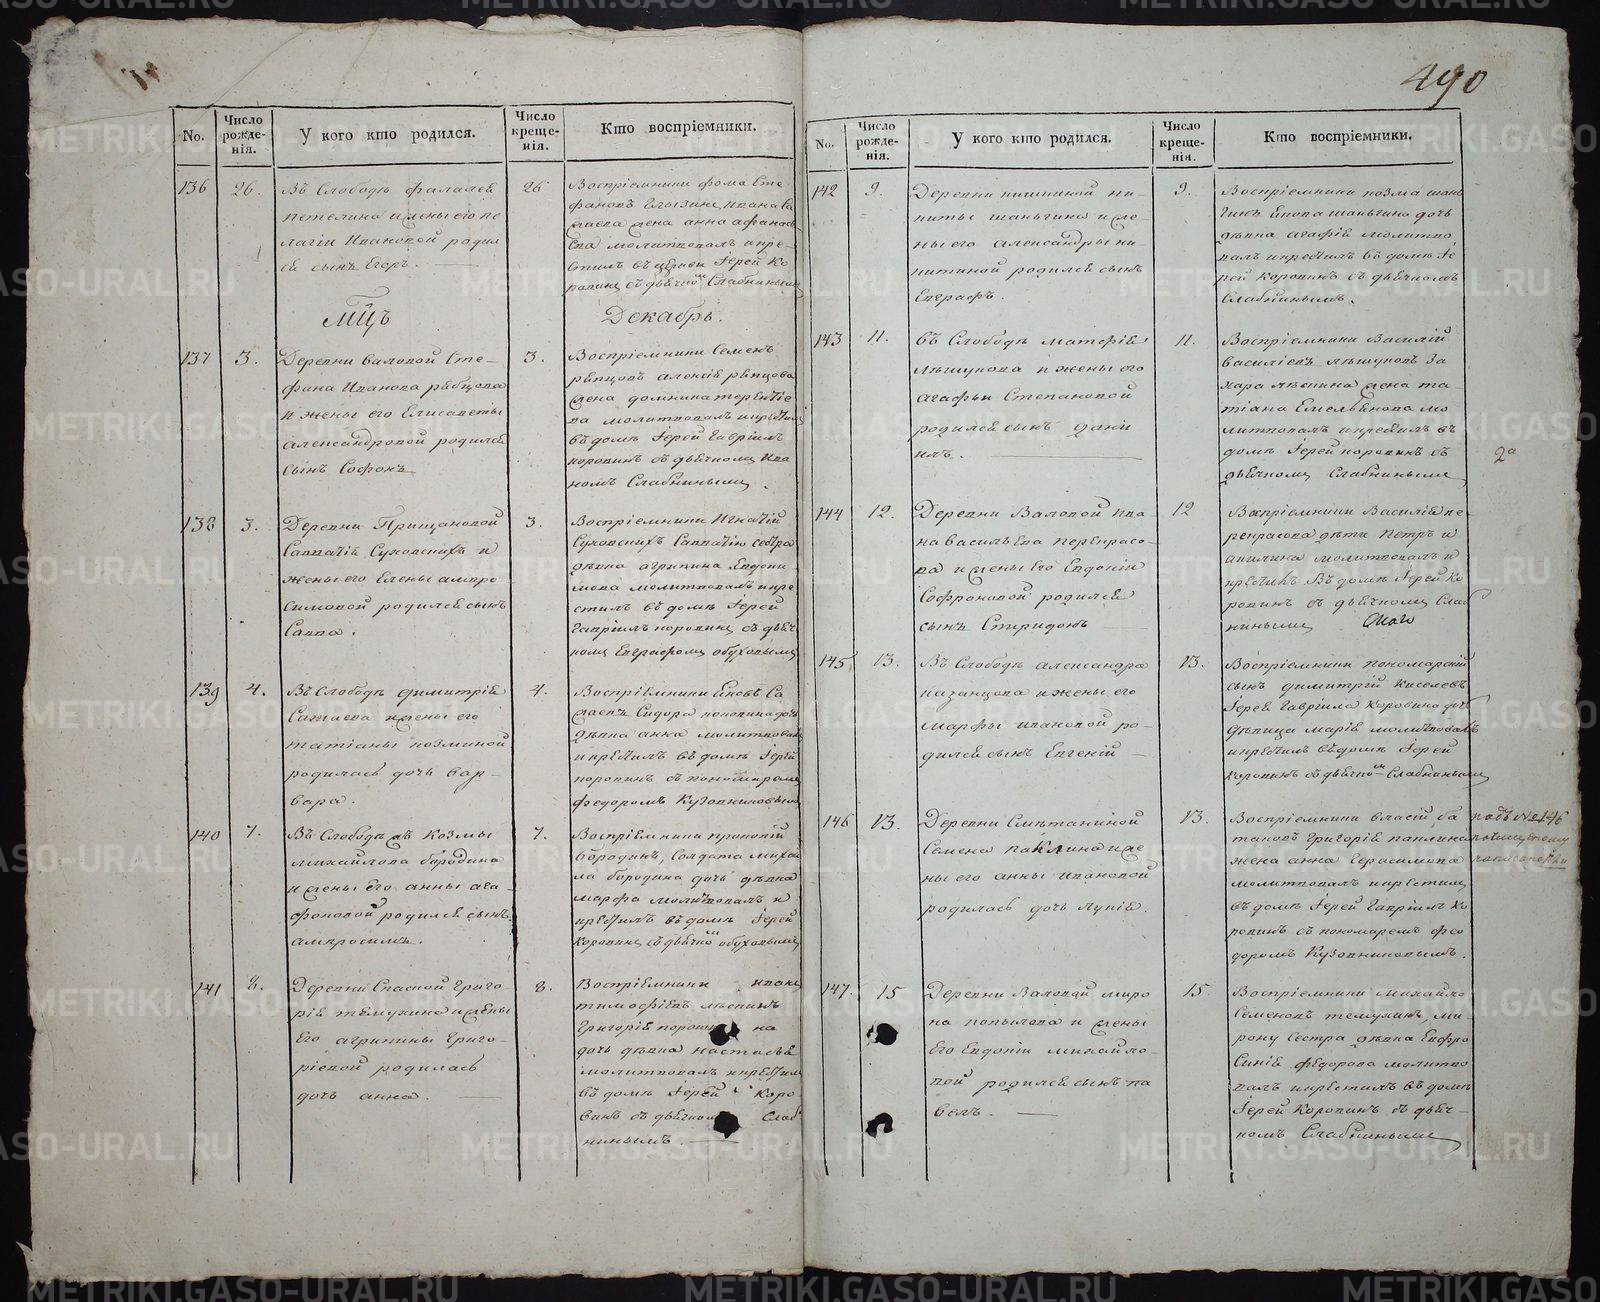 490
No.
Число рожде- нія.
У кого кто родился.
Число креще- нія.
Кто воспріемники.
136
26.
Въ Слободѣ Фалалея
Петелина и жены его Пе
лагіи Ивановой родил
ся сынъ Егоръ.
26
Воспріемники Фома Сте
фановъ
жена Анна Афанась
ева молитвовалъ и кре-
стилъ въ церкви Іерей Ко
ровинъ съ дьячкомъ Слабнинымъ
Мцъ
Декабрь.
137
3.
Деревни Валовой Сте-
фана Иванова Рѣпцова
и жены его Елисаветы
Александровой родился
сынъ Софонъ
3.
Воспріемники Семенъ
Рѣпцовъ Алексія Рѣпцова
жена Домна Терентіе
ва молитвовалъ и крестилъ
въ домѣ Іерей Гавріилъ
Коровинъ съ дьячкомъ Ива
номъ Слабнинымъ.
138
3.
Деревни Прищановой
Савватія Суховскихъ и
жены его Елены Амвро
симовой родился сынъ
Савва.
3.
Воспріемники Игнатій
Суховскихъ Савватію сестра
дѣвка Агрипина Евдоки
мова молитвовалъ и кре
стилъ въ домѣ Іерей
Гавріилъ Коровинъ съ дьяч
комъ Евграфомъ Обуховымъ
139
4.
Въ Слободѣ Димитрія
Сажаева и жены его
Татіаны Козминой
родилась дочь Вар-
вара.
4.
Воспріемники Яковъ Са
жаевъ Сидора Коновина дочь
дѣвка Анна молитвовалъ
и крестилъ въ домѣ Іерей
Коровинъ съ пономаремъ
Федоромъ Кузовниковымъ
140
7.
Въ Слободѣ Козмы
Михайлова Бородина
и жены его Анны Ага-
фоновой родился сынъ
Амвросимъ.
7.
Воспріемники Прокопій
Бородинъ, Солдата Михай
ла Бородина дочь дѣвка
Марфа молитвовалъ и
крестилъ въ домѣ Іерей
Коровинъ съ дьячкомъ Обуховымъ
141
8.
Деревни Спаской Григо-
рія Темухина и жены
его Агрипины Григо-
ріевой родилась
дочь Анна.
8.
Воспріемники Иванъ
Тимофѣевъ Мѣкинъ
Григорія
дочь дѣвка Настасья
молитвовалъ и крестилъ
въ домѣ Іерей Коро
винъ съ дьячкомъ Слаб
нинымъ.
No.
Число рожде- нія.
У кого кто родился.
Число креще- нія.
Кто воспріемники.
142
9.
Деревни Никитиной Ни-
киты Шаньгина и же-
ны его Александры Ни-
китиной родился сынъ
Евграфъ.
9.
Воспріемники Козма Шань
гинъ Якова Шаньгина дочь
дѣвка Агафія молитво
валъ и крестилъ въ домѣ Іе
рей Коровинъ съ дьячкомъ
Слабнинымъ.
143
11.
Въ Слободѣ Матфія
Мѣшукова и жены его
Агафьи Степановой
родился сынъ Дани
илъ.
11.
Воспріемники Василій
Василіевъ Мѣшуковъ За
хара Мѣкина жена Та-
тіана Емельянова мо
литвовалъ и крестилъ въ
домѣ Іерей Коровинъ съ
дьячкомъ Слабнинымъ
2а
144
12.
Деревни Валовой Ива
на Васильева Перекрасо-
ва и жены его Евдокіи
Софроновой родился
сынъ Спиридонъ
12
Воспріемники Василія Пе
рекрасова дѣти Петръ и
Акилина молитвовалъ и
крестилъ въ домѣ Іерей Ко
ровинъ съ дьячкомъ Слаб
нинымъ
145
13.
Въ Слободѣ Александра
Казанцова и жены его
Марфы Ивановой ро-
дился сынъ Евгеній
13.
Воспріемники Пономарскій
сынъ Димитрій Киселевъ
Іерея Гавріила Коровина дочь
дѣвица Марія молитвовалъ
и крестилъ въ домѣ Іерей
Коровинъ съ дьячкомъ Слабнинымъ
146
13.
Деревни Смѣтаниной
Семена Паклина и же
ны его Анны Ивановой
родилась дочь Лукія.
13.
Воспріемники Власій Ба
таковъ Григорія Паклина
жена Анна Герасимова
молитвовалъ и крестилъ
въ домѣ Іерей Гавріилъ Ко
ровинъ съ пономаремъ Фео
доромъ Кузовниковымъ.
подъ №146
147.
15
Деревни Валовой Миро
на Копылова и жены
его Евдокіи Михайло-
вой родился сынъ Па
велъ.
15.
Воспріемники Михайло
Семеновъ Темухинъ, Ми-
рону сестра дѣвка Евфро
синія Федорова молитво
валъ и крестилъ въ домѣ
Іерей Коровинъ съ дьяч-
комъ Слабнинымъ